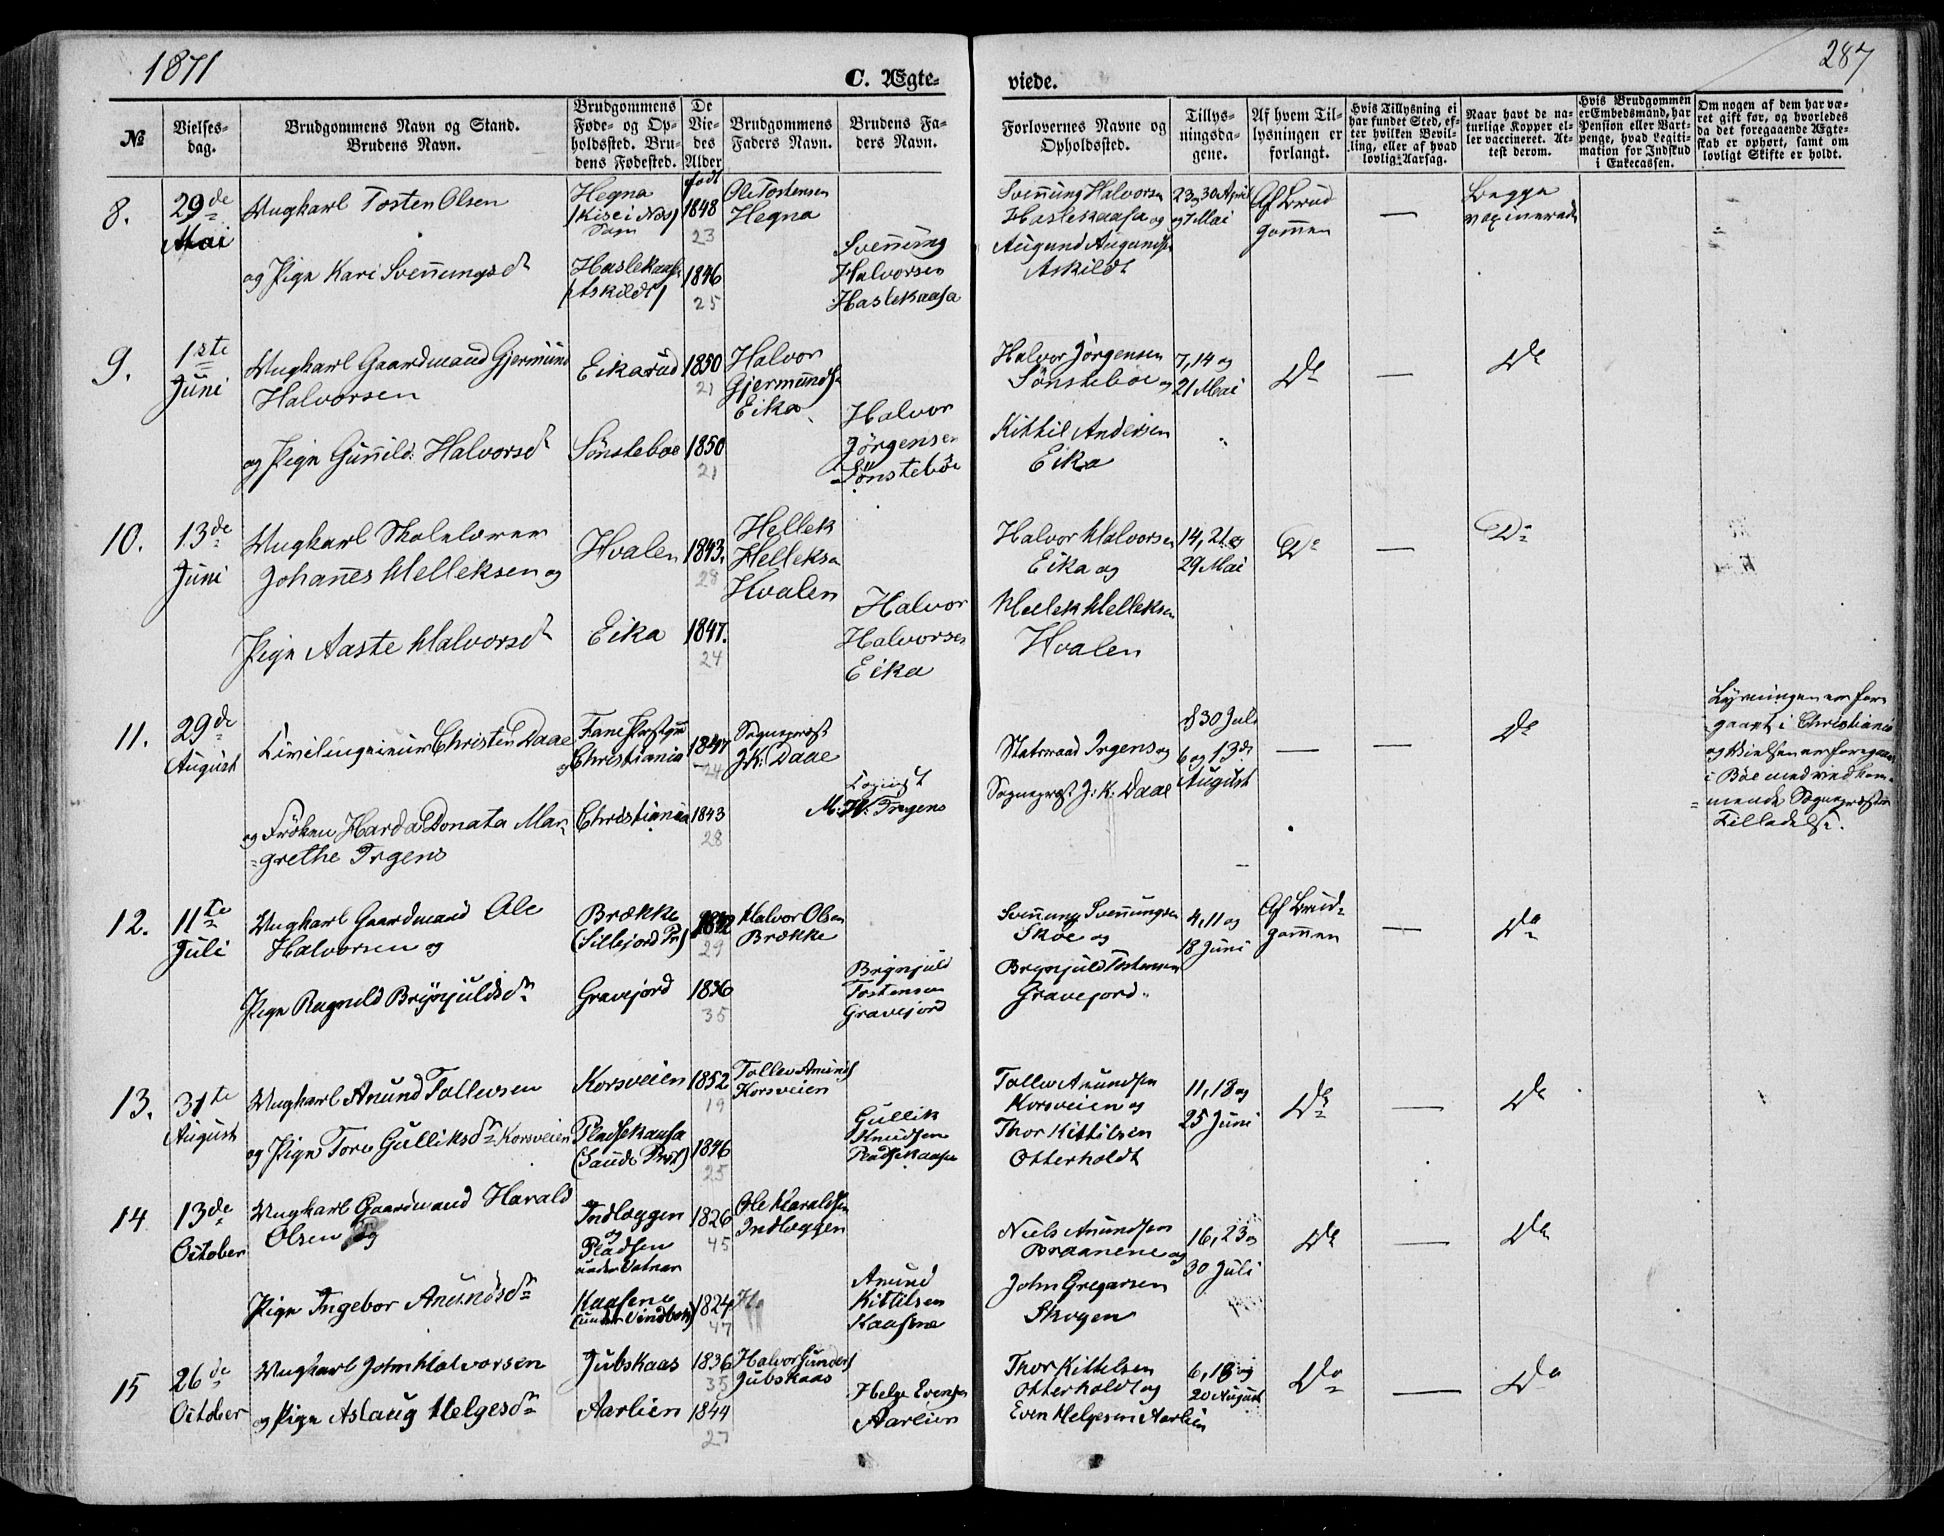 1871
287
C. Ægte-
viede.
№
Vielses-
dag.
Brudgommens Navn og Stand.
Brudens Navn.
Brudgommens
Føde- og Op-
holdssted. Bru-
dens Fødested.
De
Vie-
des
Alder
Brudgommens
Faders Navn.
Brudens Fa-
ders Navn.
Forlovernes Navne og
Opholdssted.
Tillys-
ningsda-
gene.
Af hvem Til-
lysningen er
forlangt.
Hvis Tillysning ei
har fundet Sted, ef-
ter hvilken Bevil-
ling, eller af hvad
lovlig Aarsag.
Naar havt de na-
turlige Kopper el-
ler vaccineret. At-
test derom.
Hvis Brudgommen
er Embedsmand, har
Pension eller Vart-
penge, hvad Legiti-
mation for Indskud
i Enkecassen.
Om nogen af dem har væ-
ret gift før, og hvorledes
da det foregaaende Ægte-
skab er ophørt, samt om
lovligt Skifte er holdt.
8.
29de
Mai
Ungkarl Tosten Olsen
og Pige Kari Svennungsdr
Hegna
/Kise i Næs/
Haslekaasa
/Askildt/
født
1848
23
1846
25
Ole Tostensen
Hegna
Svennung
Halvorsen
Haslekaasa
Svennung Halvorsen
Haslekaasa og
Augund Augundsen
Askildt
23, 30 April
og 7 Mai
Af Brud
gommen
—
Begge
vaxinerede
9.
1ste
Juni
Ungkarl Gaardmand Gjermund
Halvorsen
og Pige Gunnild Halvorsdr
Eikarud
Sønsteboe
1850
21
1850
21
Halvor
Gjermunds
Eika
Halvor
Jørgensen
Sønstebøe
Halvor Jørgensen
Sønstebøe og
Kittil Andersen
Eika
7, 14 og
21 Mai
Do
—
Do
10.
13de
Juni
Ungkarl Skolelærer
Johannes Helleksen og
Pige Aaste Halvorsdr
Hvalen
Eika
1843.
28
1847.
24
Hellek
Helleksen
Hvalen
Halvor
Halvorsen
Eika
Halvor Halvorsen
Eika og
Hellek Helleksen
Hvalen
14, 21 og
29 Mai
Do
—
Do
11.
29de
August
Civilingeniør Christen Daae
og Frøken Harda Donata Mar-
grethe Irgens
Christiania
Christiania
1847
24
1843
28
Sognepræst
J.K. Daae
M. H. Irgens
Statsraad Irgens og
Sognepræst J. K. Daae
d 30 Juli
6 og 13de
August
—
—
Do
Lysningen er fore
gaaet i Christiania
og Vielsen er foregaaet
i Bøe med vedkom-
mende Sognepræsters
Tilladelse.
12.
11te
Juli
Ungkarl Gaardmand Ole
Halvorsen og
Pige Ragnild Brynjuldsdr
Brække
(Sillejord Pr)
Gravejord
1842
29
1836
35
Halvor Olsen
Brække
Brynjuld
Tostensen
Gravejord
Svennung Svennungsen
Skoe og
Brynjuld Tostensen
Gravejord
4, 11 og
18 Juni
Af Brud-
gommen
—
Do
13.
31te
August
Ungkarl Anund Tollevsen
og Pige Tore Gulliksdr Korsveien
Korsveien
Pladsekaasa
(Saude Prst)
1852
19
1846
25
Tollev Anunds
Korsveien
Gullik
Knudsen
Pladsekaasa
Tollev Anundsen
Korsveien og
Thor Kittilsen
Otterholdt
11, 18 og
25 Juni
Do
—
Do
14
13de
October
Ungkarl Gaardmand Harald
Olsen og
Pige Ingebor Anundsdr
Indlæggen
og
Pladsen
under Vatnar
Kaasene
(under Vindbek)
1826
45
1824
47
Ole Haraldsen
Indlæggen
Anund
Kittilsen
Kaasene
Niels Anundsen
Braanene og
John Gregarsen
Skogen
16, 23 og
30 Juli
Do
—
Do
15
26de
October
Ungkarl John Halvorsen
og Pige Aslaug Helgesdr
Jubskaas
Aarlien
1836
35
1844
27
Halvor Gunders
Jubskaas
Helge Evensen
Aarlien
Thor Kittelsen
Otterholdt og
Even Helgesen Aarlien
6, 13 og
20 August
Do
—
Do